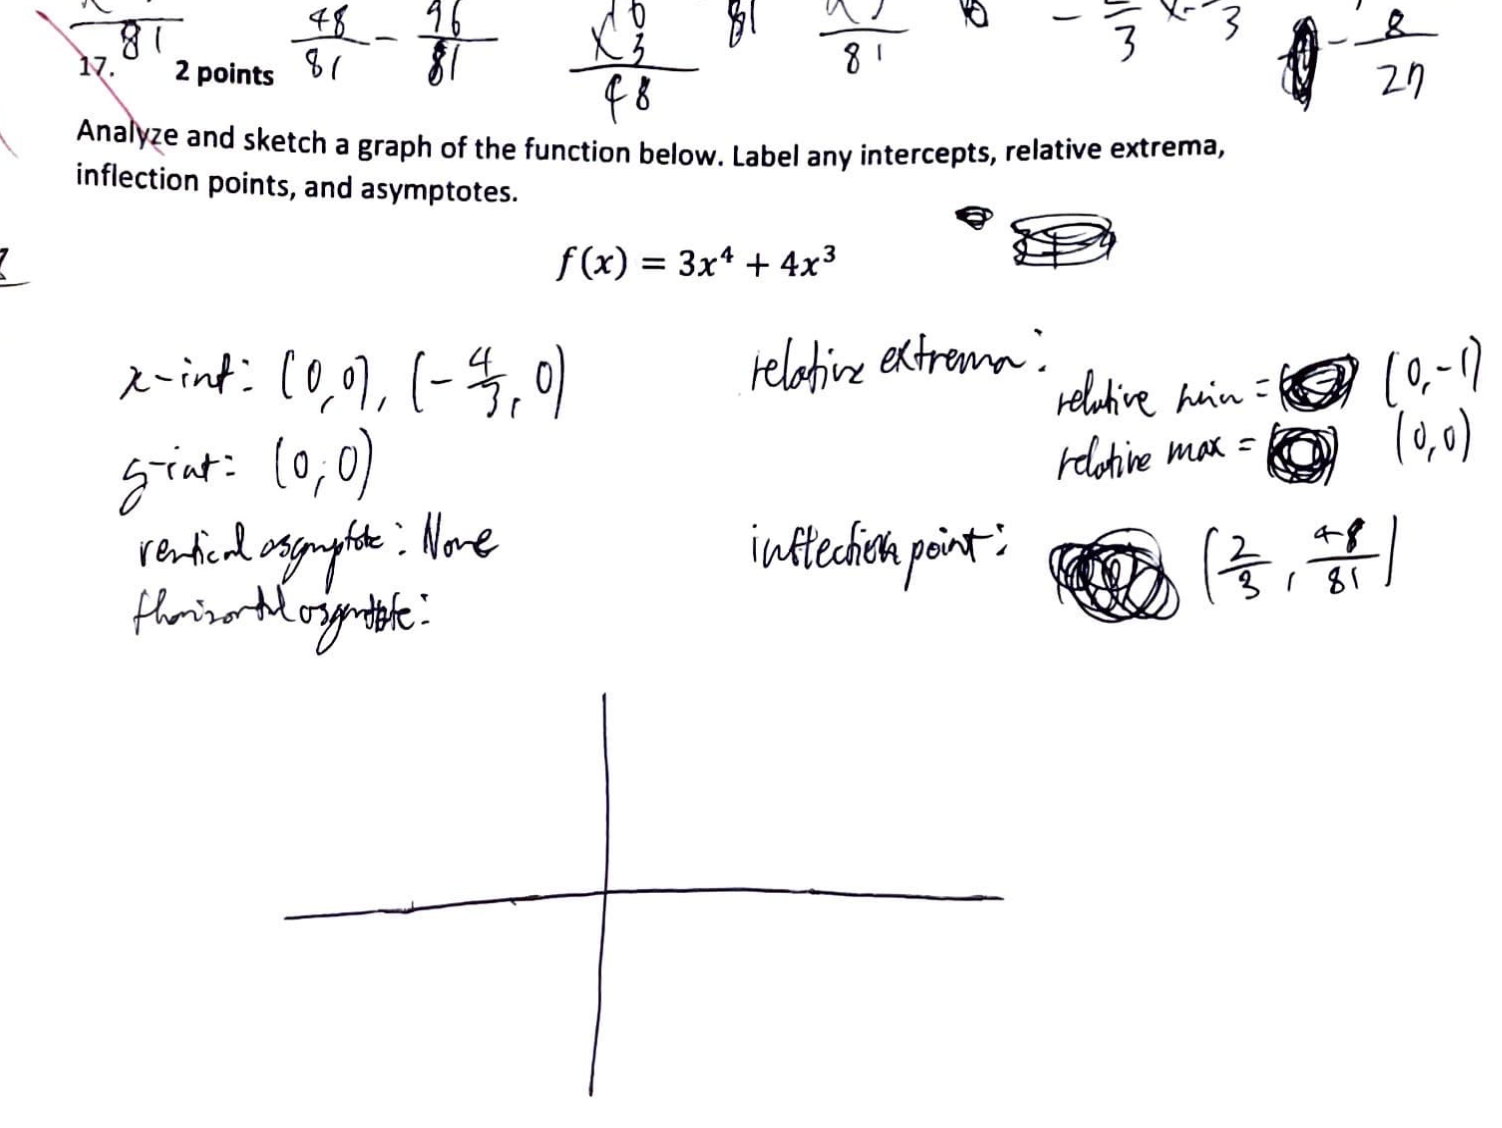 81 48/81 - 96/81 x 3 81 81 - /3 x - 3 - 8/27
17. 2 points 48
Analyze and sketch a graph of the function below. Label any intercepts, relative extrema,
inflection points, and asymptotes.
f(x) = 3x⁴ + 4x³
x-int: (0,0), (-4/3, 0)
relative extrema:
relative min = (0,-1)
y-int: (0,0)
relative max = (0,0)
vertical asymptote: None
inflection point: (2/3, 48/81)
Horizontal asymptote: